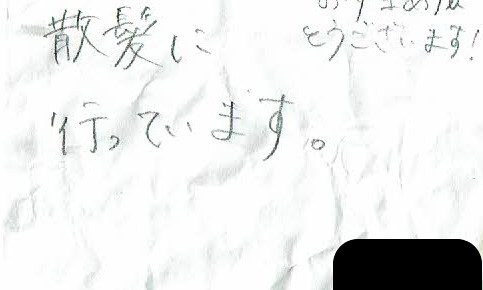 散髪に
行っています。
とうございます!